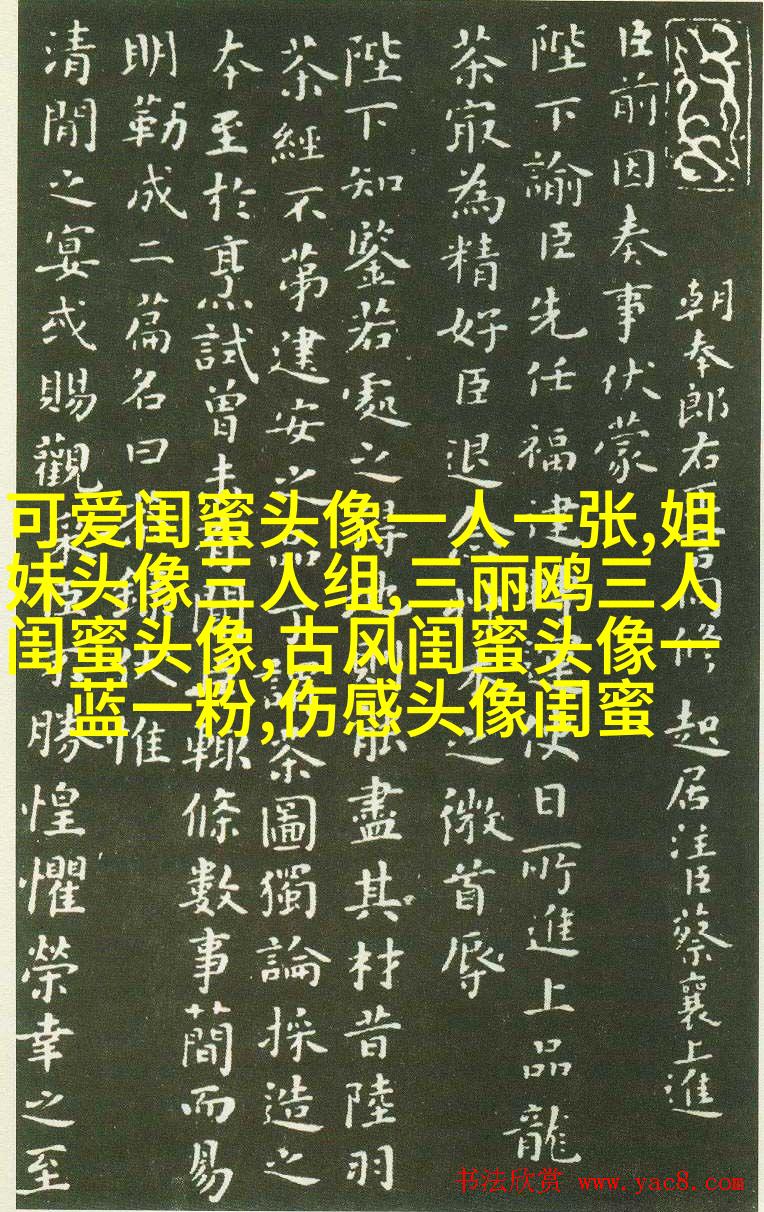 朝奉郎右正言同修起居注臣蔡襄上進
臣前因奏事伏蒙
陛下諭臣先任福建使日所進上品龍
茶㝡為精好臣退念之微首辱
陛下知鑒若處之得能盡其材昔陸羽
茶經不第建安之品丁謂茶圖獨論採造之
本至於烹試曾未有聞臣輒條數事簡而易
明勒成二篇名曰惟
清閒之宴或賜觀采勝惶懼榮幸之至
可爱闺蜜头像一人一张,姐
妹头像三人组,三丽鸥三人
闺蜜头像,古风闺蜜头像一
蓝一粉,伤感头像闺蜜
书法欣赏 www.yac8.com